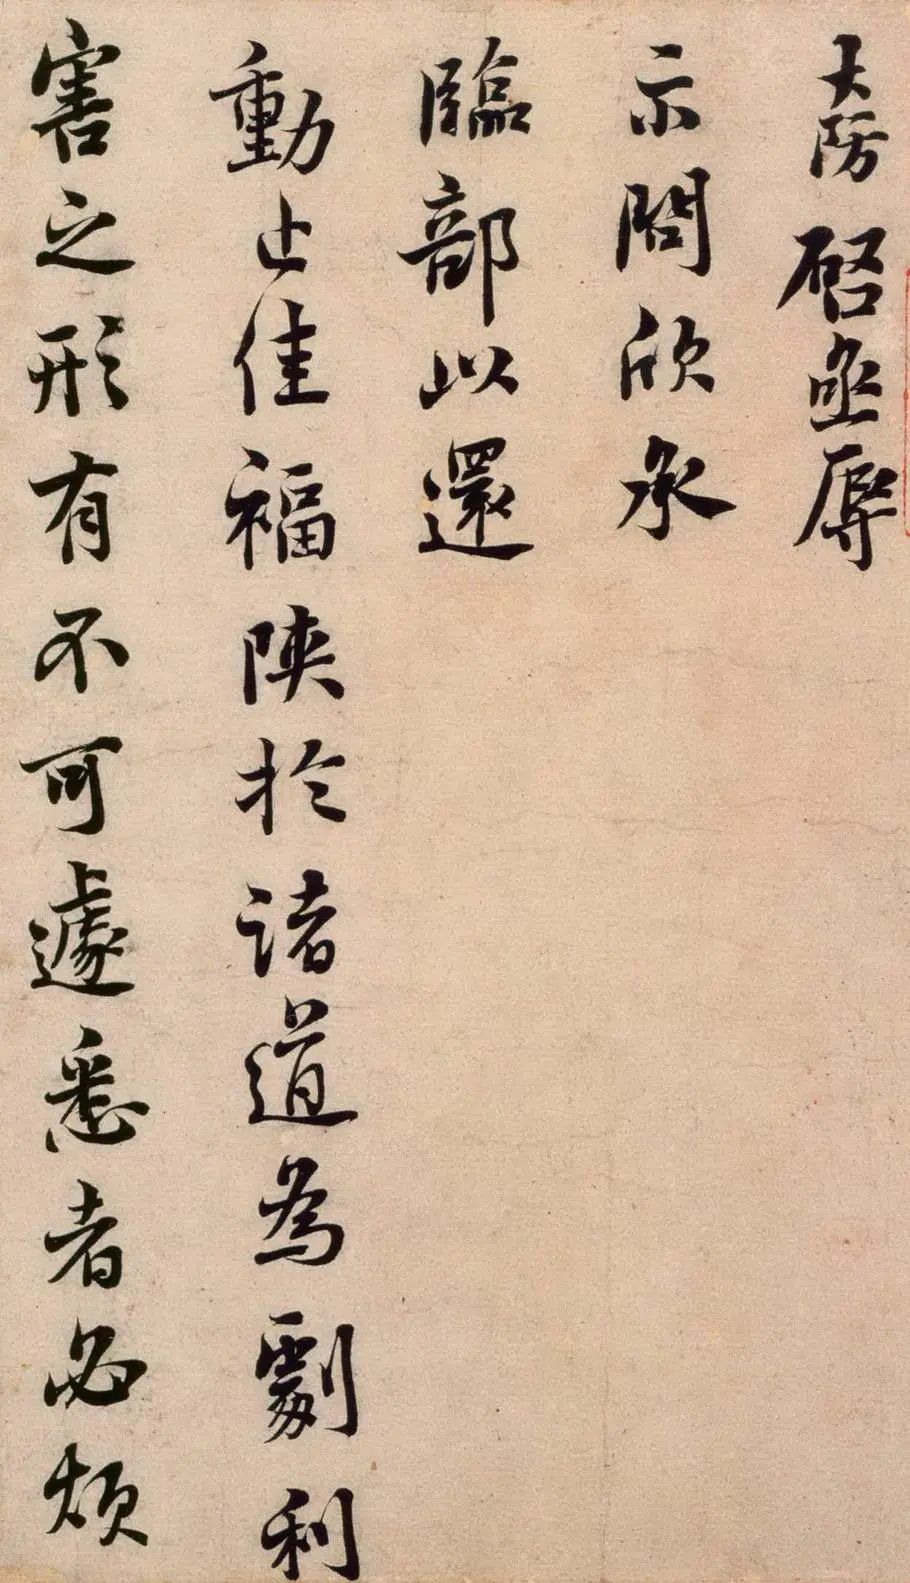 大防啓亟辱
示問欣承
臨部以還
動止佳福陝於諸道為劇利
害之形有不可遽悉者必煩